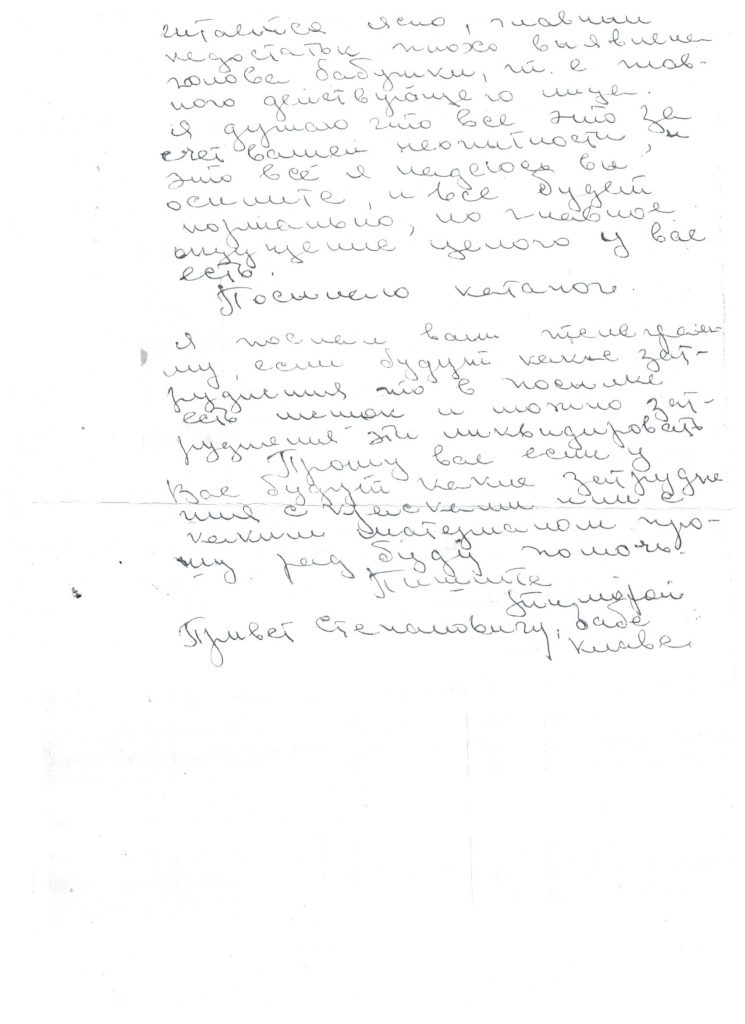 читается ясно, главный
недостаток плохо выявлена
голова бабушки, т. е. глав-
ного действующего лица.
я думаю что все это за
счет вашей неопытности, и
это всё я надеюсь вы
осилите, и все будет
нормально, но главное
ощущение целого у вас
есть.
Посылаю каталог.
я послал вам телеграм-
му, если будут какие зат-
руднения то в посылке
есть и можно зат-
руднения эти ликвидировать
Прошу вас если у
Вас будут какие затрудне
ния с красками или с
каким материалом про-
шу. рад буду помочь.
Пишите
Привет Степановичу, бабе
Клаве